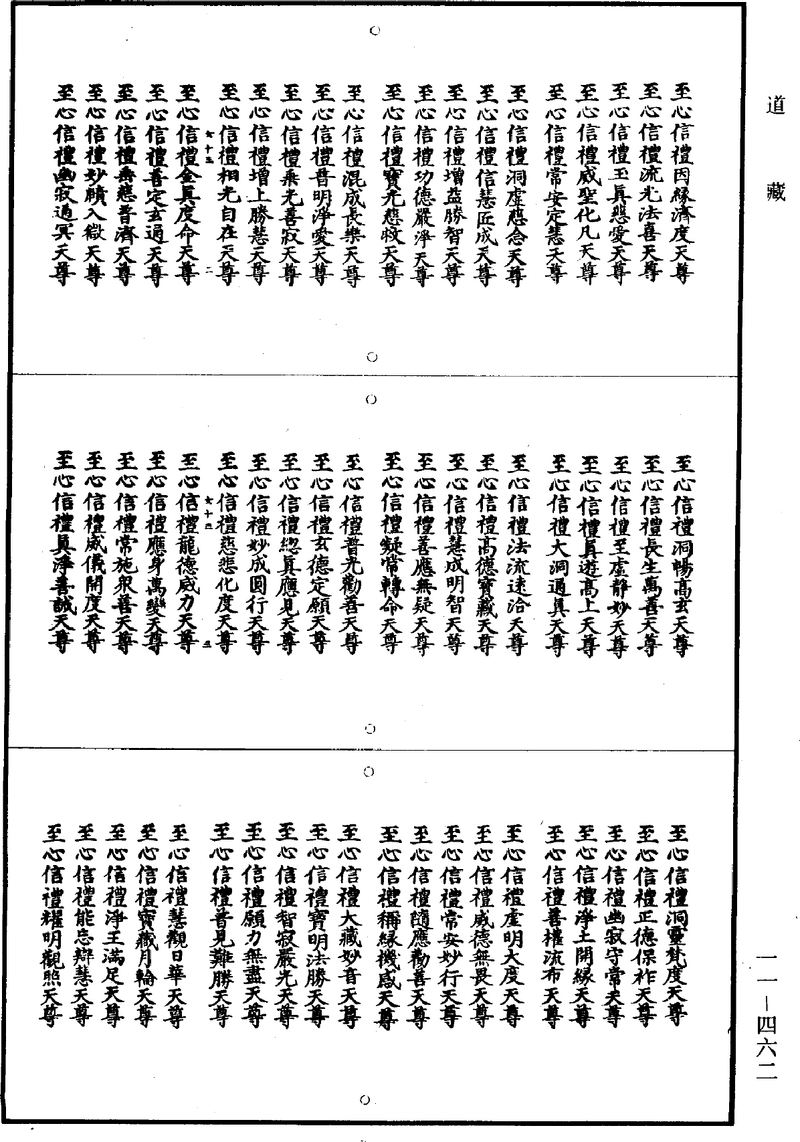 道藏
至心信禮因緣濟度天尊
至心信禮流光法喜天尊
至心信禮玉眞慈愛天尊
至心信禮威聖化凡天尊
至心信禮常安定慧天尊
至心信禮洞虛應念天尊
至心信禮信慧匠成天尊
至心信禮增益勝智天尊
至心信禮功德嚴淨天尊
至心信禮寶光慈救天尊
至心信禮混成長樂天尊
至心信禮普明淨愛天尊
至心信禮乘光善寂天尊
至心信禮增上勝慧天尊
至心信禮相光自在天尊
女十五 二
至心信禮金眞度命天尊
至心信禮善定玄通天尊
至心信禮無悲普濟天尊
至心信禮妙賾入微天尊
至心信禮幽寂過冥天尊
至心信禮洞暢高玄天尊
至心信禮長生萬善天尊
至心信禮至虛靜妙天尊
至心信禮眞遊高上天尊
至心信禮大洞通眞天尊
至心信禮法流遠洽天尊
至心信禮高德寶藏天尊
至心信禮慧成明智天尊
至心信禮善應無疑天尊
至心信禮凝常轉命天尊
至心信禮普光勸善天尊
至心信禮玄德定願天尊
至心信禮惣眞應見天尊
至心信禮妙成圓行天尊
至心信禮慈悲化度天尊
女十四 三
至心信禮龍德威力天尊
至心信禮應身萬變天尊
至心信禮常施衆善天尊
至心信禮威儀開度天尊
至心信禮眞淨善誠天尊
至心信禮洞靈梵度天尊
至心信禮正德保祚天尊
至心信禮幽寂守常天尊
至心信禮淨土開緣天尊
至心信禮善權流布天尊
至心信禮虛明大度天尊
至心信禮威德無畏天尊
至心信禮常安妙行天尊
至心信禮隨應勸善天尊
至心信禮稱緣機感天尊
至心信禮大藏妙音天尊
至心信禮寶明法勝天尊
至心信禮智寂嚴光天尊
至心信禮願力無盡天尊
至心信禮普見難勝天尊
至心信禮慧觀日華天尊
至心信禮寶藏月輪天尊
至心信禮淨王滿足天尊
至心信禮能忘辯慧天尊
至心信禮耀明觀照天尊
一一—四六二